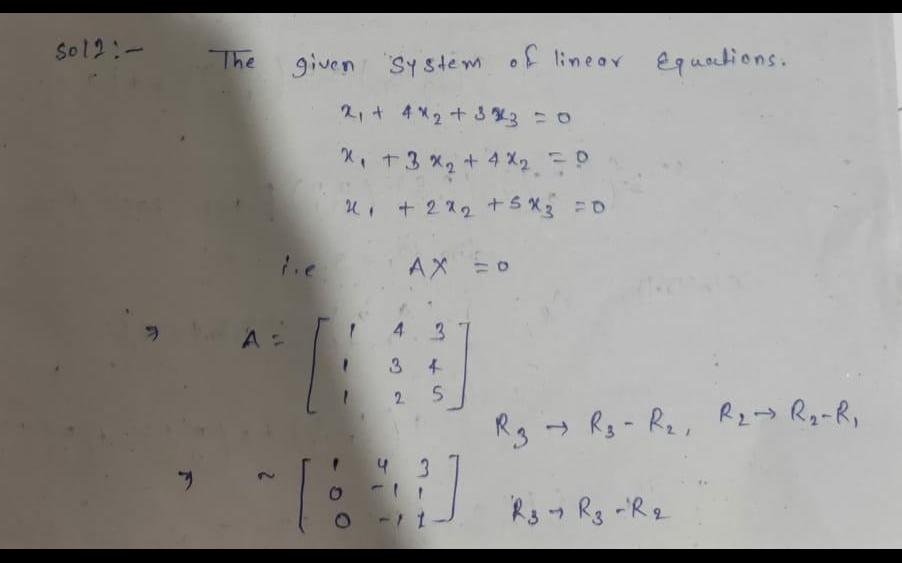 Sol2:- The given system of linear Equations.
x₁ + 4x₂ + 3x₃ = 0
x₁ + 3x₂ + 4x₂ = 0
x₁ + 2x₂ + 5x₃ = 0
i.e AX = 0
⇒ A = [ 1 4 3
1 3 4
1 2 5 ]
R₃ → R₃ - R₂, R₂ → R₂-R₁
⇒ ~ [ 1 4 3
0 -1 1
0 -1 1 ] R₃ → R₃ - R₂